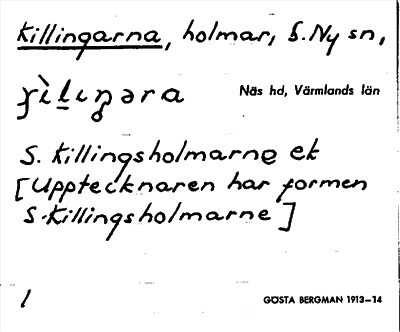 Killingarna, holmar, S. Ny sn,
Näs hd, Värmlands län
S. Killingsholmarne ek
[Upptecknaren har formen
S. Killingsholmarne]
1
GÖSTA BERGMAN 1913–14